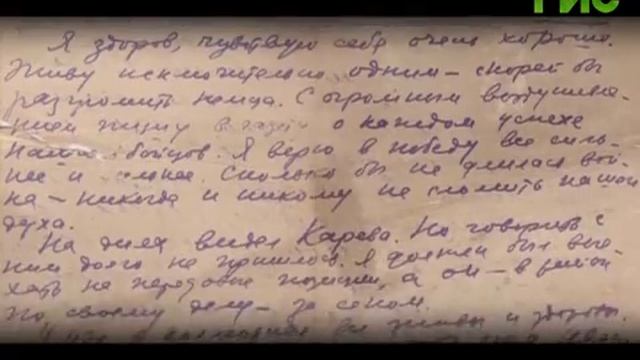 ГИС
Я здоров, чувствую себя очень хорошо.
Живу исключительно одним — скорей бы
разгромить немца. С огромным воодушевле-
нием пишу в газету о каждом успехе
наших бойцов. Я верю в победу все силь-
нее и сильнее. Сколько бы не длилась вой-
на — никогда и никому не сломить нашего
духа.
На днях видел Карева. Но говорить с
ним долго не пришлось. Я должен был вые-
хать на передовые позиции, а он — в район
по своему делу — за сеном.
все живы и здоровы.